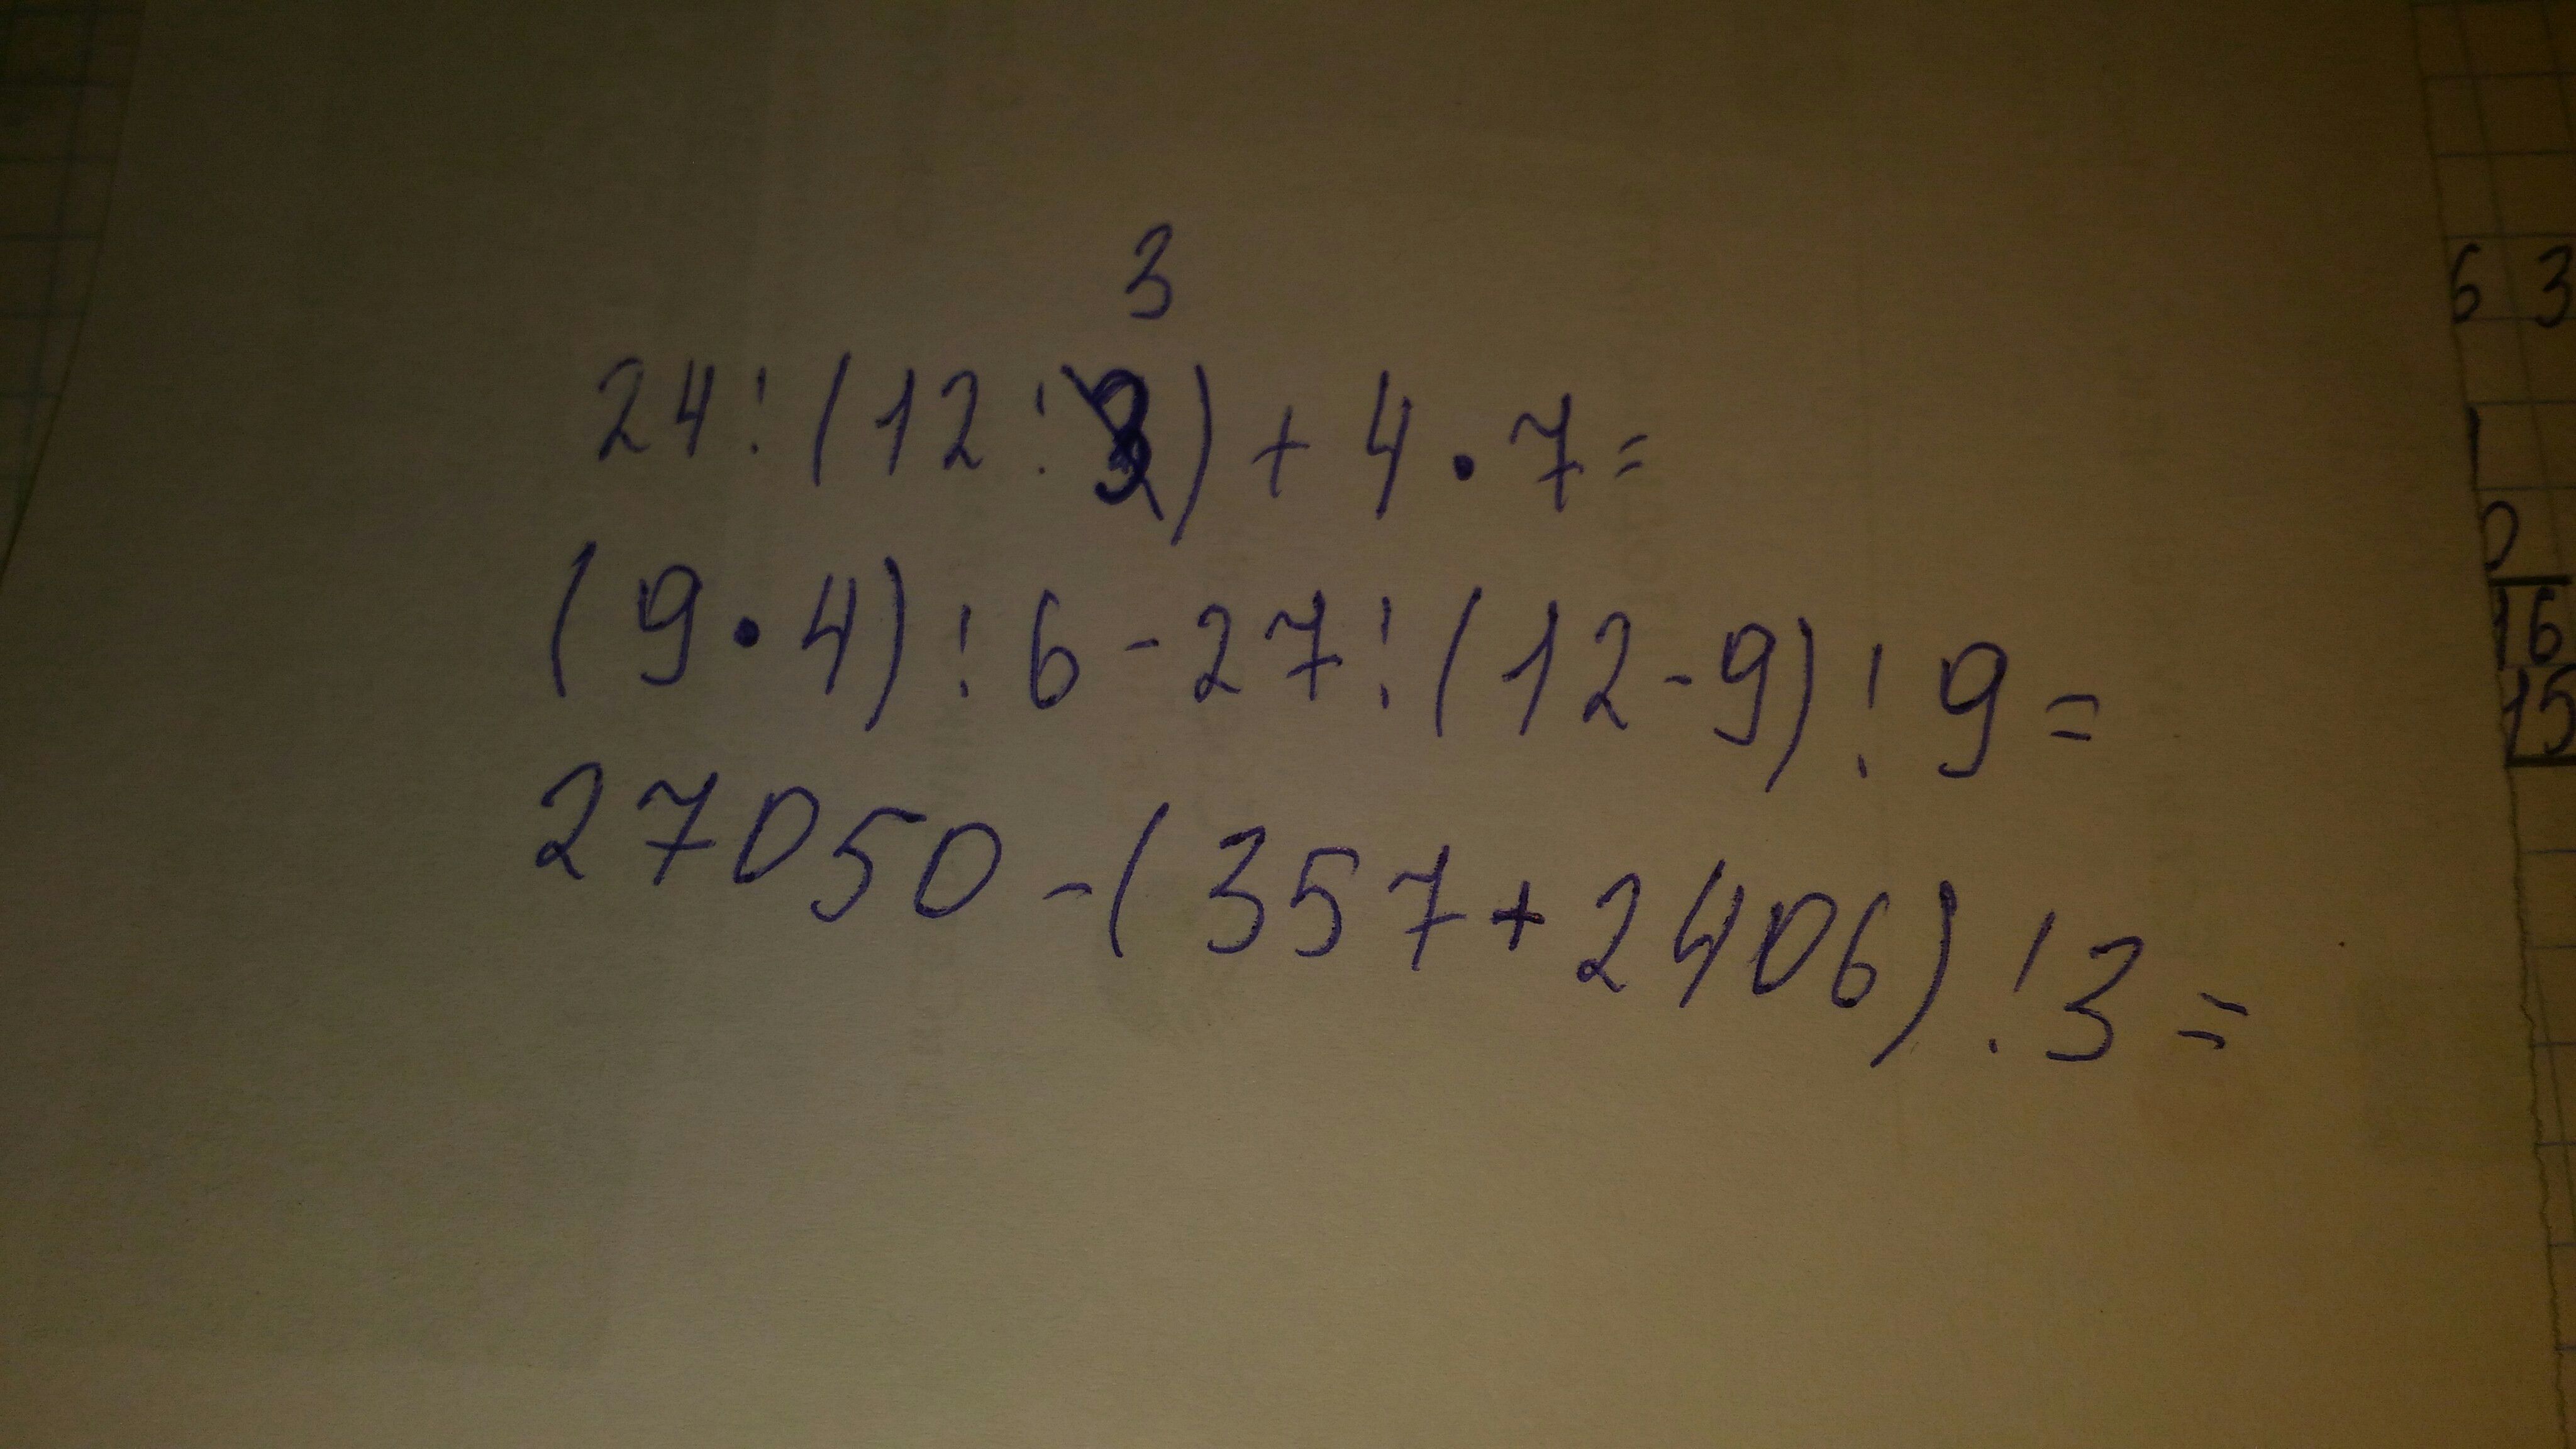 3
24:(12:3)+4·7=
(9·4):6-27:(12-9):9=
27050-(357+2406):3=
6 3
1
0
16
15